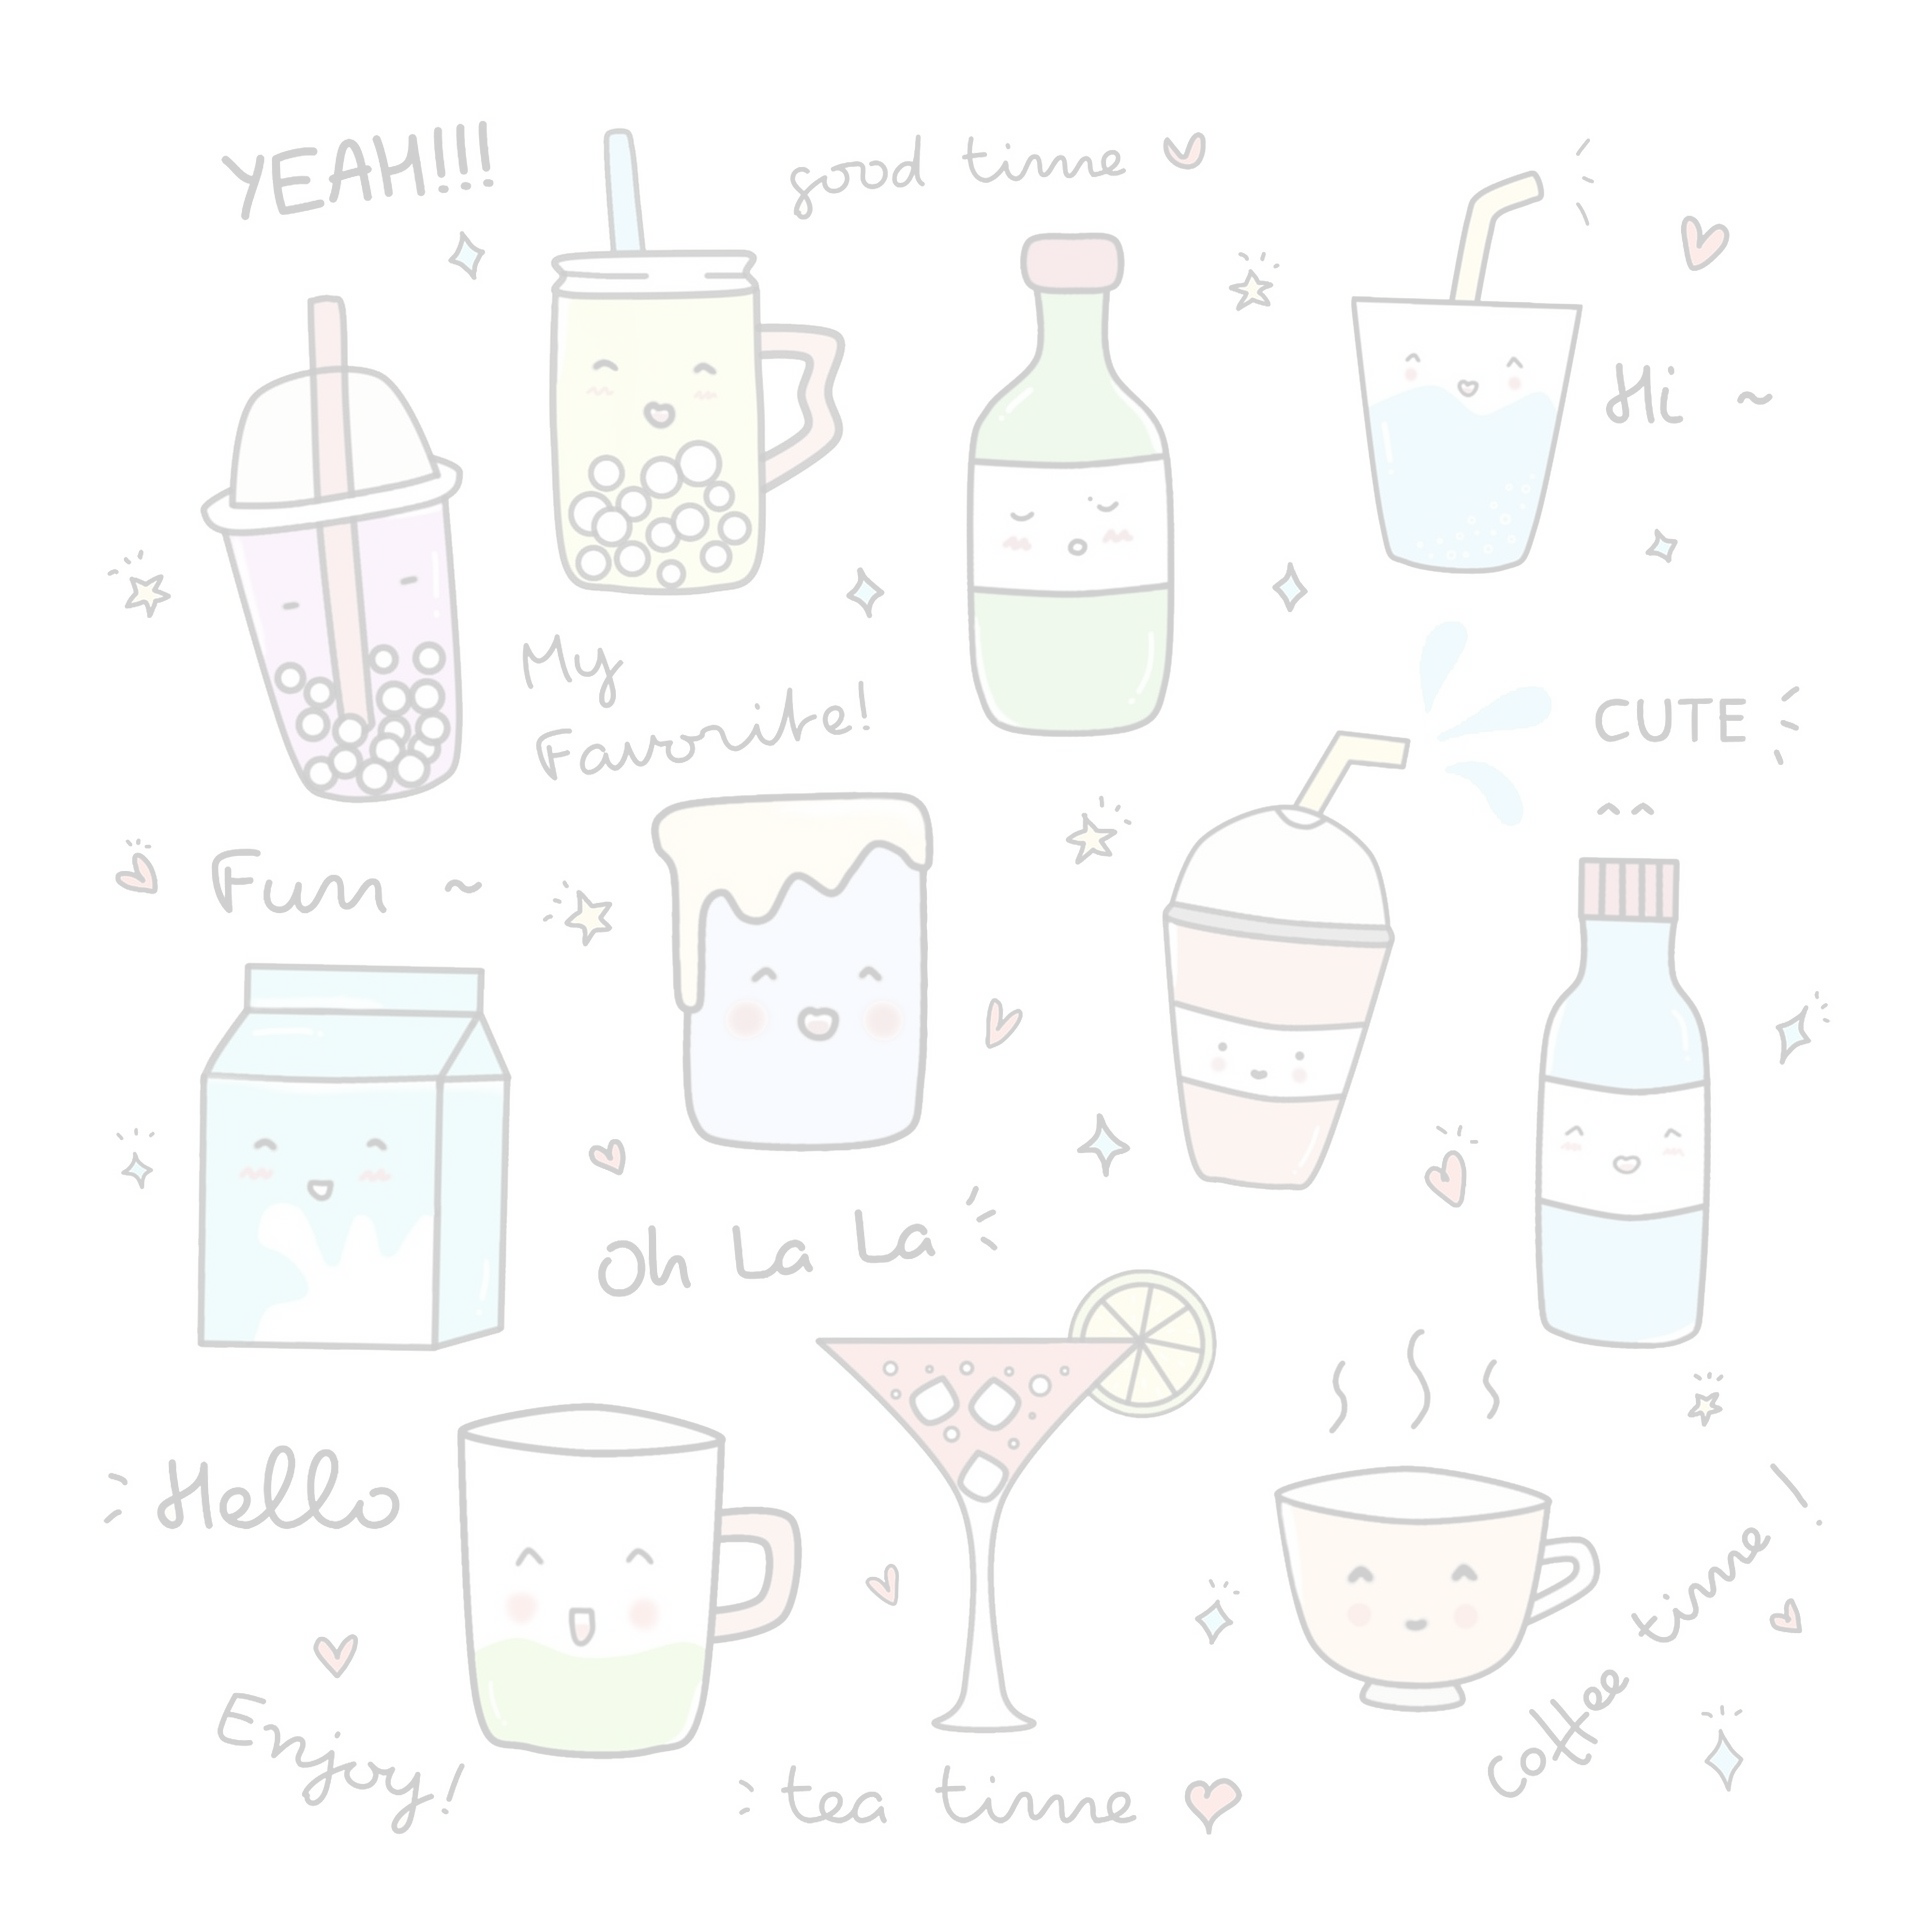 YEAH!!!!
good time
Hi ~
My
Favorite!
CUTE
Fun ~
Oh La La
Hello
Coffee time!
Enjoy!
tea time